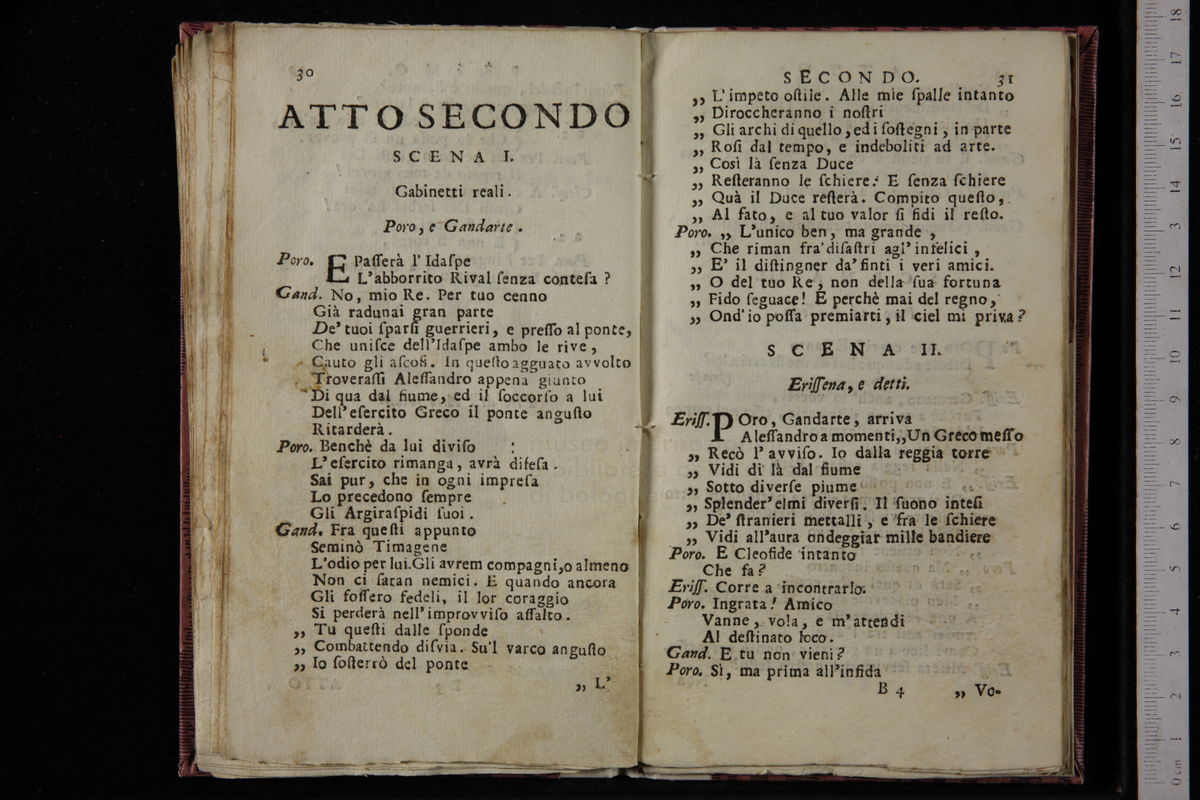 30
ATTO SECONDO
SCENA I.
Gabinetti reali.
Poro, e Gandarte.
Poro. E Paſſerà l'Idaſpe
L'abborrito Rival ſenza conteſa?
Gand. No, mio Re. Per tuo cenno
Già radunai gran parte
De' tuoi ſparſi guerrieri, e preſſo al ponte,
Che uniſce dell'Idaſpe ambo le rive,
Cauto gli aſcoſi. In queſto agguato avvolto
Troveraſſi Aleſſandro appena giunto
Di qua dal fiume, ed il ſoccorſo a lui
Dell'eſercito Greco il ponte anguſto
Ritarderà.
Poro. Benchè da lui diviſo
L'eſercito rimanga, avrà difeſa.
Sai pur, che in ogni impreſa
Lo precedono ſempre
Gli Argiraſpidi ſuoi.
Gand. Fra queſti appunto
Seminò Timagene
L'odio per lui. Gli avrem compagni, o almeno
Non ci ſaran nemici. E quando ancora
Gli foſſero fedeli, il lor coraggio
Si perderà nell'improvviſo aſſalto.
„ Tu queſti dalle ſponde
„ Combattendo diſvia. Su'l varco anguſto
„ Io ſoſterrò del ponte
„ L'
SECONDO. 31
„ L'impeto oſtile. Alle mie ſpalle intanto
„ Diroccheranno i noſtri
„ Gli archi di quello, ed i ſoſtegni, in parte
„ Roſi dal tempo, e indeboliti ad arte.
„ Così là ſenza Duce
„ Reſteranno le ſchiere: E ſenza ſchiere
„ Quà il Duce reſterà. Compito queſto,
„ Al fato, e al tuo valor ſi fidi il reſto.
Poro. „ L'unico ben, ma grande,
„ Che riman fra' diſaſtri agl'infelici,
„ E' il diſtingner da' finti i veri amici.
„ O del tuo Re, non della ſua fortuna
„ Fido ſeguace! E perchè mai del regno,
„ Ond'io poſſa premiarti, il ciel mi priva?
SCENA II.
Eriſſena, e detti.
Eriſſ. POro, Gandarte, arriva
Aleſſandro a momenti „ Un Greco meſſo
„ Recò l'avviſo. Io dalla reggia torre
„ Vidi di là dal fiume
„ Sotto diverſe piume
„ Splender'elmi diverſi. Il ſuono inteſi
„ De' ſtranieri mettalli, e fra le ſchiere
„ Vidi all'aura ondeggiar mille bandiere
Poro. E Cleofide intanto
Che fa?
Eriſſ. Corre a incontrarlo.
Poro. Ingrata! Amico
Vanne, vola, e m'attendi
Al deſtinato loco.
Gand. E tu non vieni?
Poro. Sì, ma prima all'infida
B 4 „ Vo-